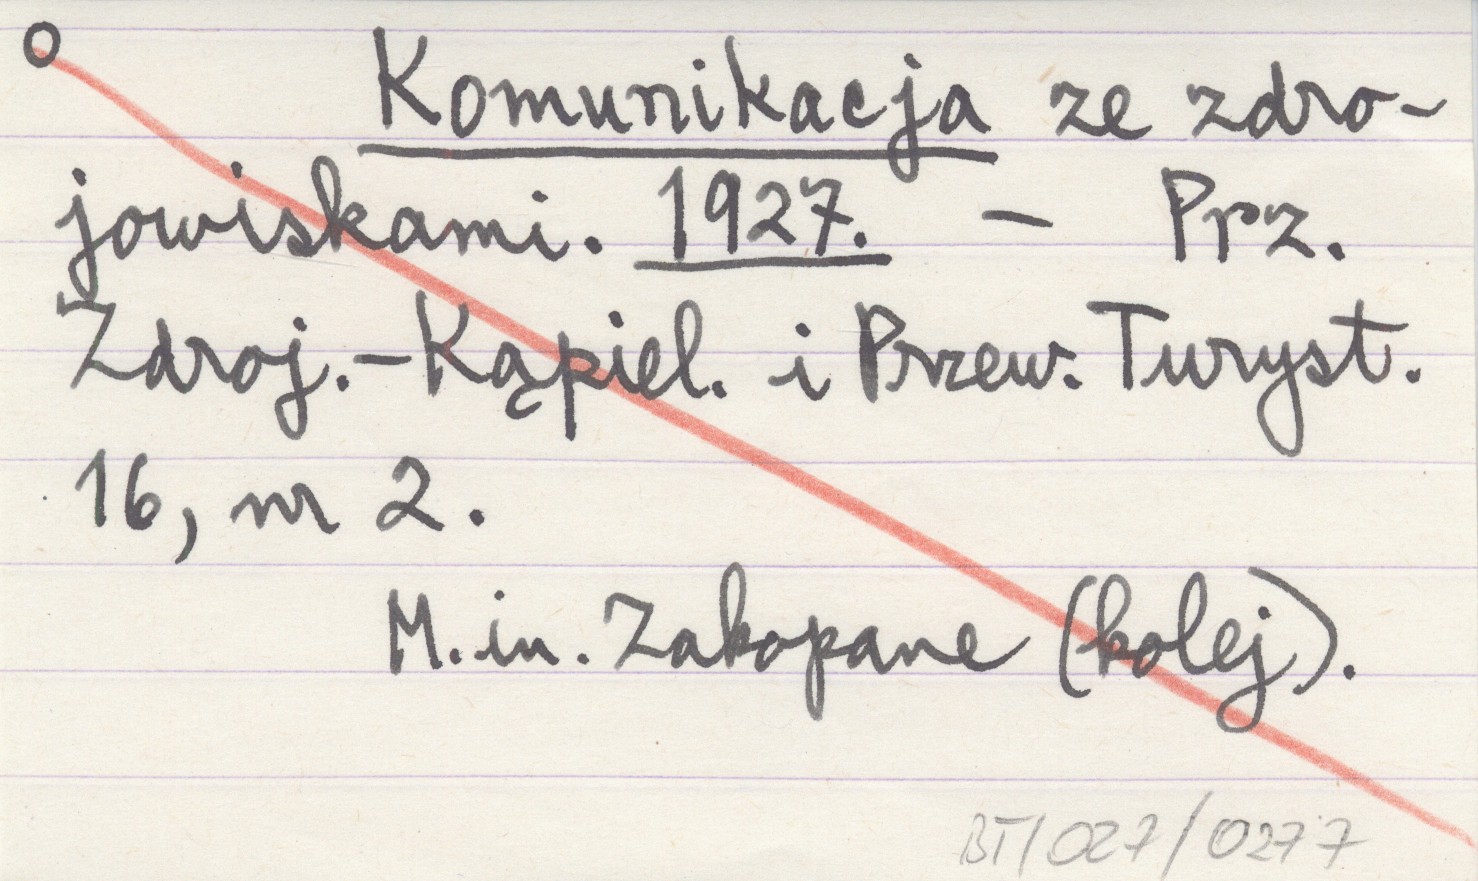 Komunikacja ze zdro-
jowiskami. 1927. - Prz.
Zdroj.-Kąpiel. i Przew. Turyst.
16, nr 2.
M.in. Zakopane (kolej).
BT/027/0277